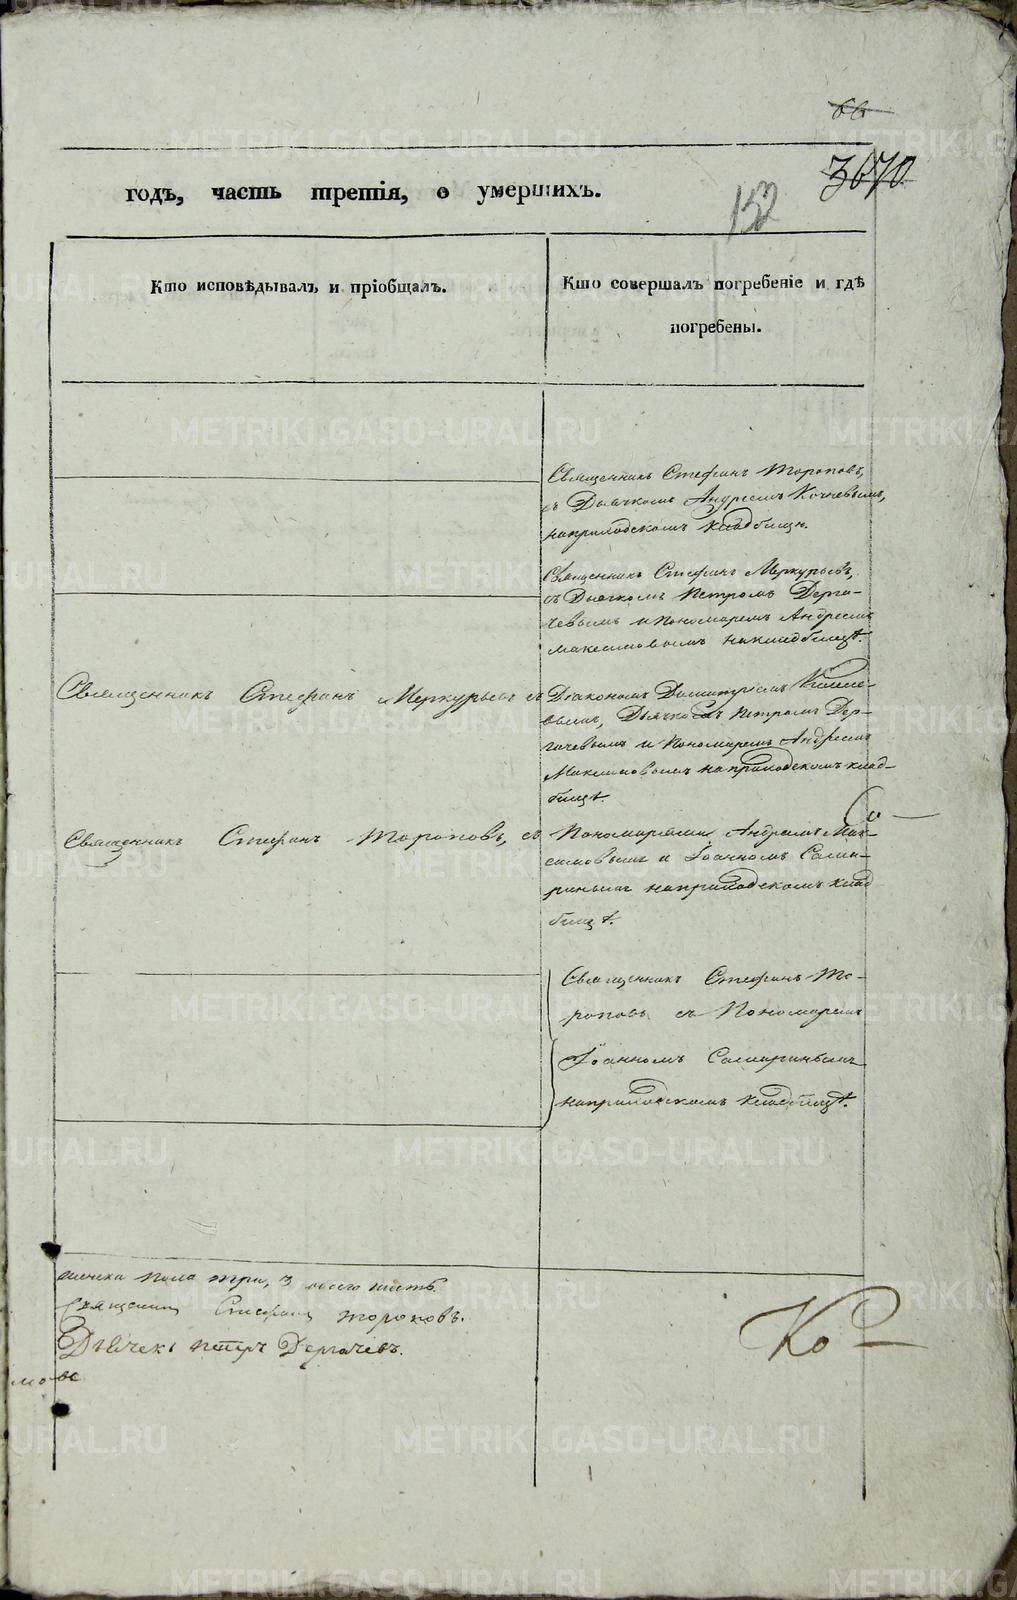 66
3670
152
годъ, часть третія, о умершихъ.
Кто исповѣдывалъ и пріобщалъ.
Кто совершалъ погребеніе и гдѣ
погребены.
Священникъ Стефанъ Тороповъ,
съ Дьячкомъ Андреемъ Кочневымъ,
на приходскомъ кладбищѣ.
Священникъ Стефанъ Меркурьевъ,
съ Дьячкомъ Петромъ Дерга-
чевымъ и Пономаремъ Андреемъ
Максимовымъ на кладбищѣ.
Священникъ Стефанъ Меркурьевъ съ Діакономъ Димитріемъ
вымъ, Дьячкомъ Петромъ Дер-
гачевымъ и Пономаремъ Андреемъ
Максимовымъ на приходскомъ клад-
бищѣ.
Священникъ Стефанъ Тороповъ, съ Пономарями Андреемъ Мак-
симовымъ и Іоанномъ Сама-
ринымъ на приходскомъ клад
бищѣ.
Священникъ Стефанъ То-
роповъ съ Пономаремъ
Іоанномъ Самаринымъ
на приходскомъ кладбищѣ.
женска пола три, 3 всего шесть.
Священник Стефанъ Тороповъ.
Дьячекъ Петръ Дергачевъ.
мовъ
Ко
METRIKI.GASO-URAL.RU